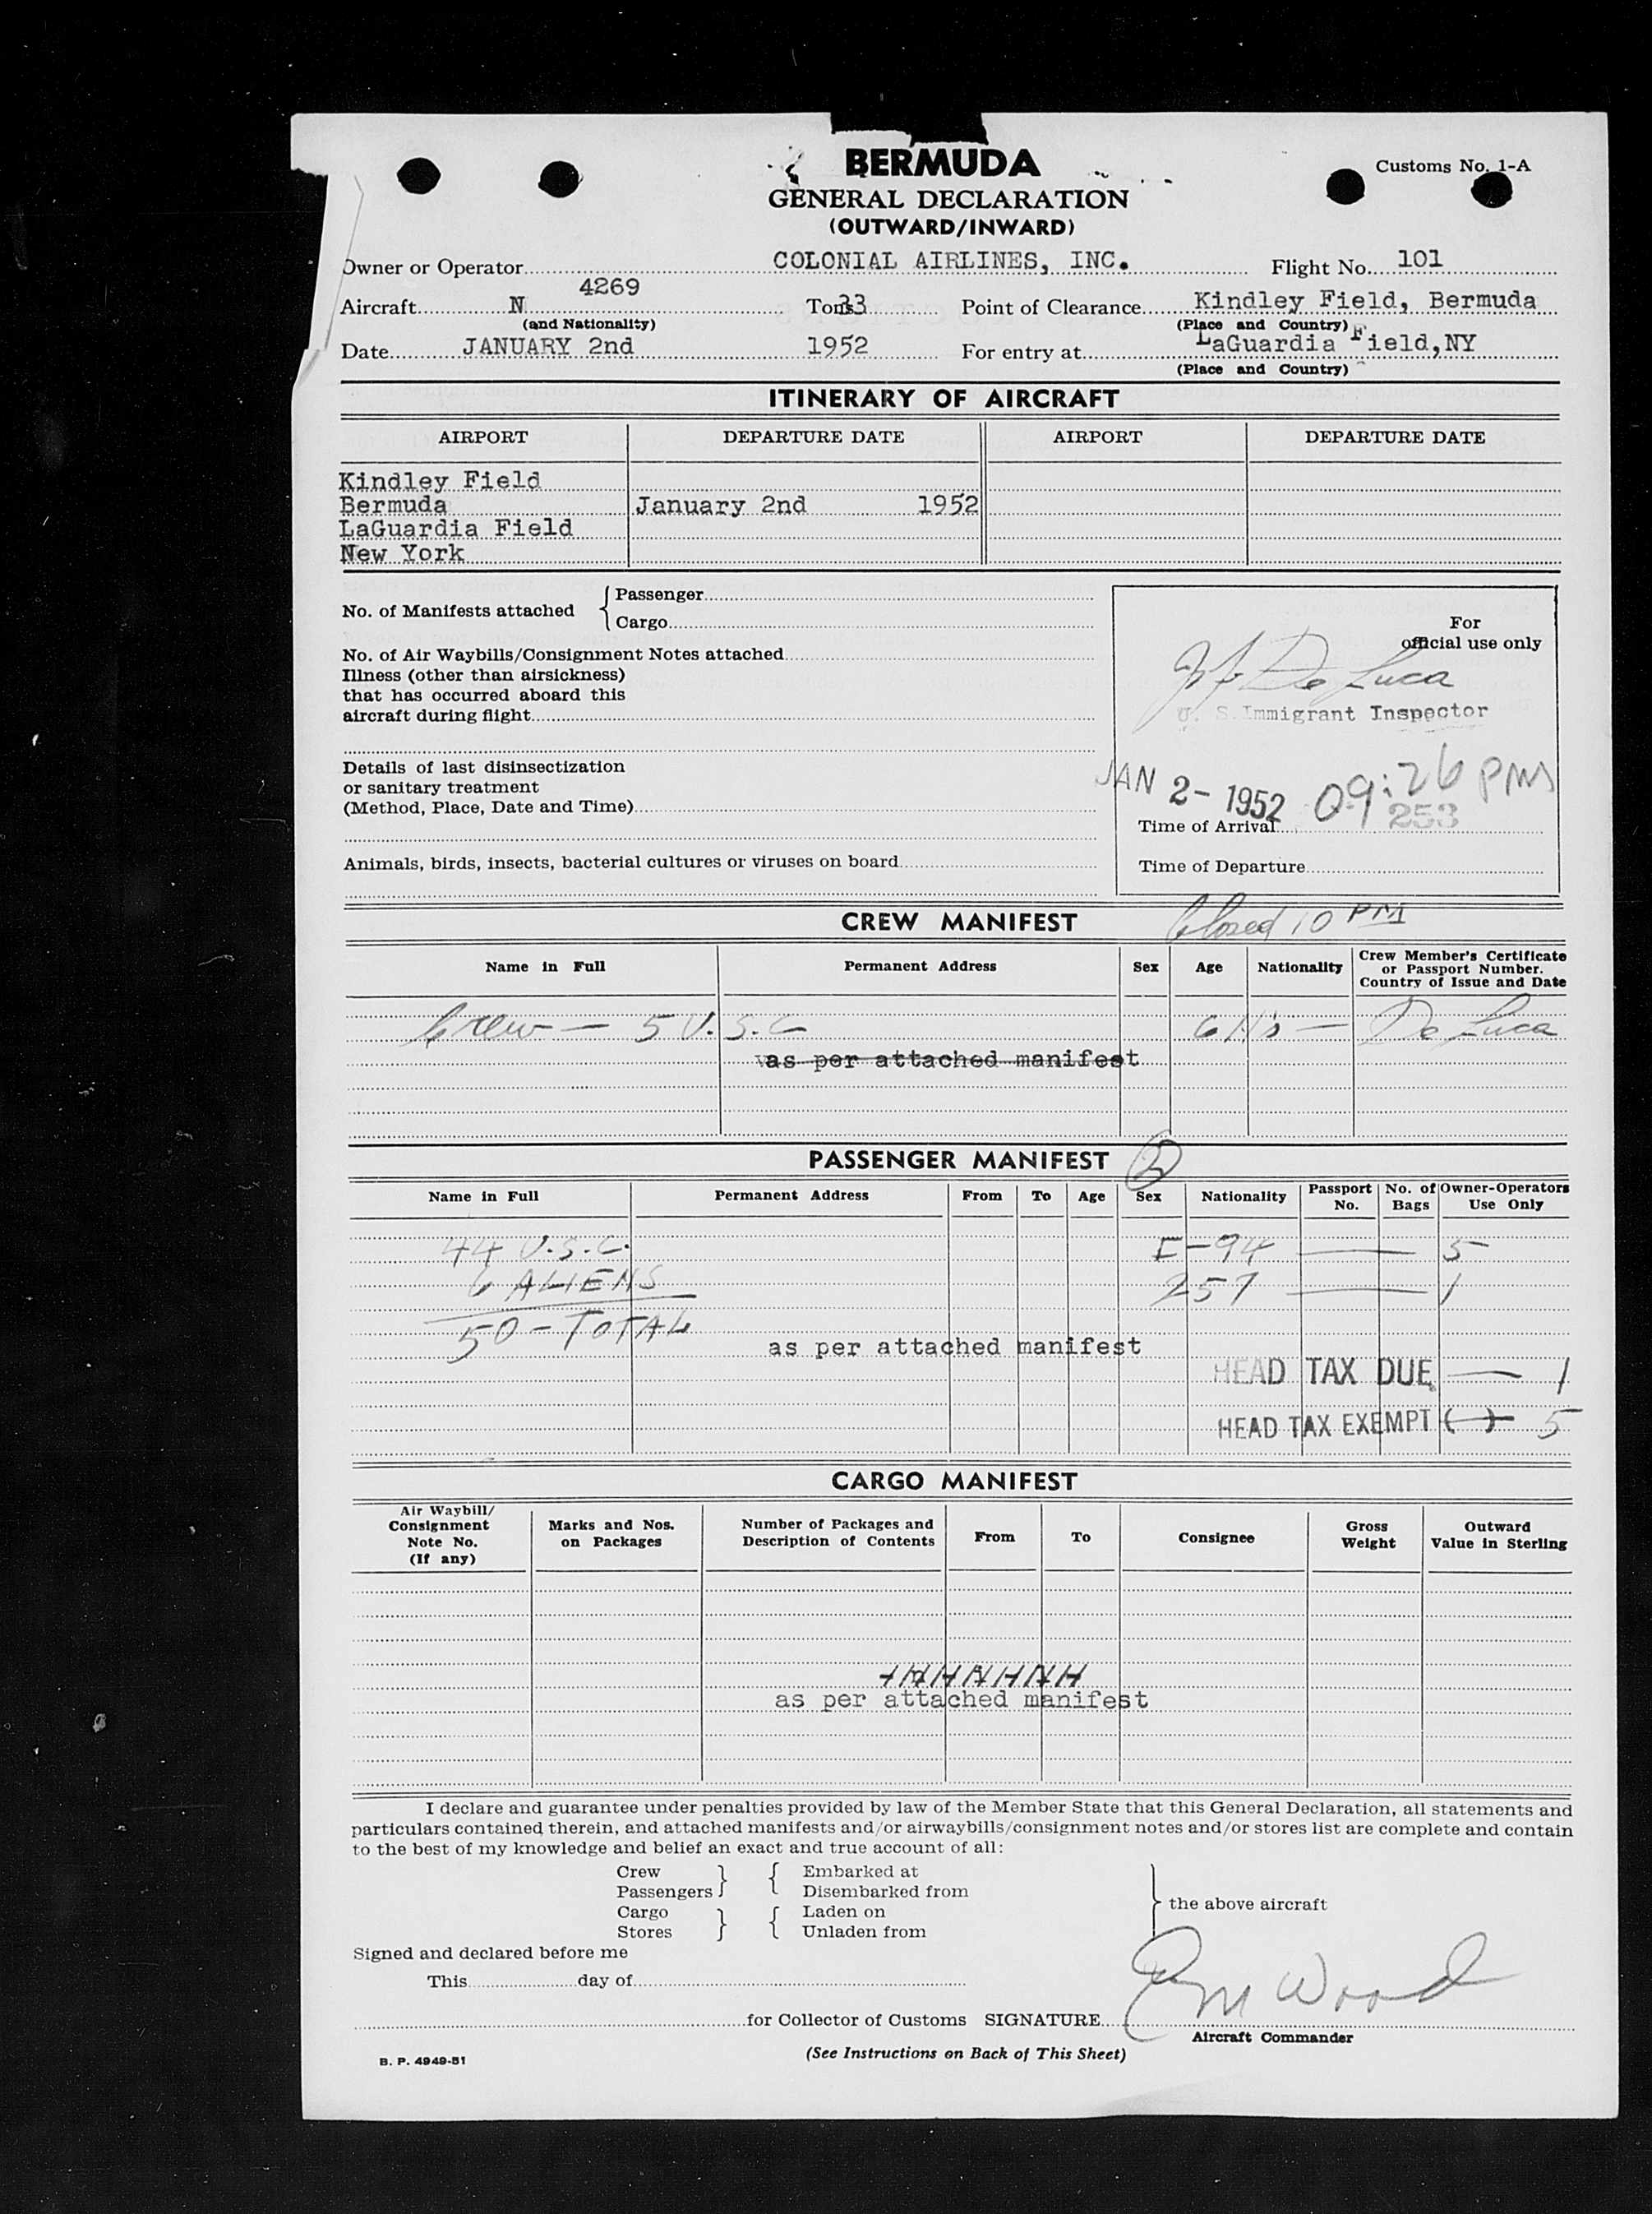 BERMUDA
Customs No. 1-A
GENERAL DECLARATION
(OUTWARD/INWARD)
Owner or Operator COLONIAL AIRLINES, INC. Flight No. 101
Aircraft N 4269 Tons 33 Point of Clearance Kindley Field, Bermuda
(and Nationality) (Place and Country)
Date JANUARY 2nd 1952 For entry at LaGuardia Field, NY
(Place and Country)
ITINERARY OF AIRCRAFT
AIRPORT DEPARTURE DATE AIRPORT DEPARTURE DATE
Kindley Field
Bermuda January 2nd 1952
LaGuardia Field
New York
No. of Manifests attached { Passenger
Cargo
For
official use only
No. of Air Waybills/Consignment Notes attached
Illness (other than airsickness)
that has occurred aboard this
aircraft during flight
De Luca
U. S. Immigrant Inspector
Details of last disinsectization
or sanitary treatment
(Method, Place, Date and Time)
JAN 2- 1952 09:26 PM
253
Time of Arrival
Animals, birds, insects, bacterial cultures or viruses on board
Time of Departure
CREW MANIFEST Closed 10 PM
Name in Full Permanent Address Sex Age Nationality Crew Member's Certificate
or Passport Number.
Country of Issue and Date
Crew — 5 U.S.C — De Luca
as per attached manifest
PASSENGER MANIFEST 2
Name in Full Permanent Address From To Age Sex Nationality Passport No. No. of Bags Owner-Operators Use Only
44 U.S.C. I-94 — 5
6 ALIENS 257 — 1
50 - TOTAL
as per attached manifest
HEAD TAX DUE — 1
HEAD TAX EXEMPT ( ) 5
CARGO MANIFEST
Air Waybill/ Consignment Note No. (If any) Marks and Nos. on Packages Number of Packages and Description of Contents From To Consignee Gross Weight Outward Value in Sterling
as per attached manifest
I declare and guarantee under penalties provided by law of the Member State that this General Declaration, all statements and
particulars contained therein, and attached manifests and/or airwaybills/consignment notes and/or stores list are complete and contain
to the best of my knowledge and belief an exact and true account of all:
Crew } { Embarked at
Passengers Disembarked from
} the above aircraft
Cargo } { Laden on
Stores Unladen from
Signed and declared before me
This day of
for Collector of Customs SIGNATURE M Wood
Aircraft Commander
(See Instructions on Back of This Sheet)
B. P. 4949-51